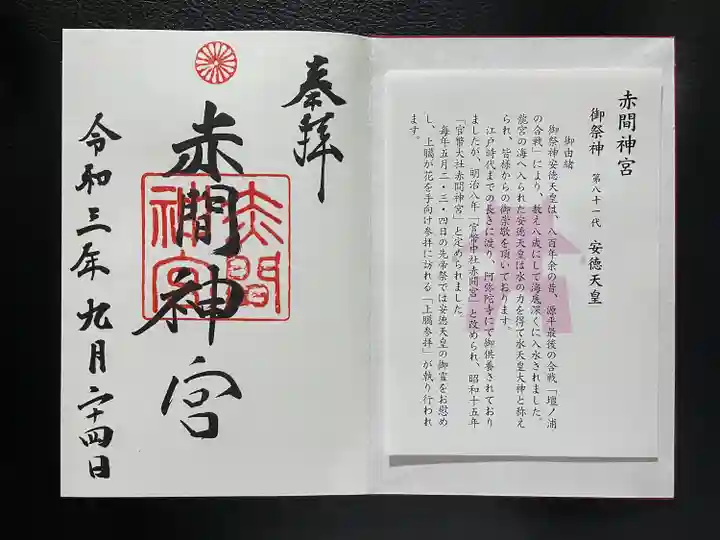 奉拝
赤間神宮
赤間
神宮
令和三年九月二十四日
赤間神宮
御祭神 第八十一代 安徳天皇
御由緒
御祭神安徳天皇は、八百年余の昔、源平最後の合戦「壇ノ浦
の合戦」により、数え八歳にして海底深くに入水されました。
龍宮の海へ入られた安徳天皇は水の力を得て水天皇大神と称え
られ、皆様からの御崇敬を頂いております。
江戸時代までの長きに渡り、阿弥陀寺にて御供養されており
ましたが、明治八年「官幣中社赤間宮」と改められ、昭和十五年
「官幣大社赤間神宮」と定められました。
毎年五月二・三・四日の先帝祭では安徳天皇の御霊をお慰め
し、上臈が花を手向け参拝に訪れる「上臈参拝」が執り行われ
ます。